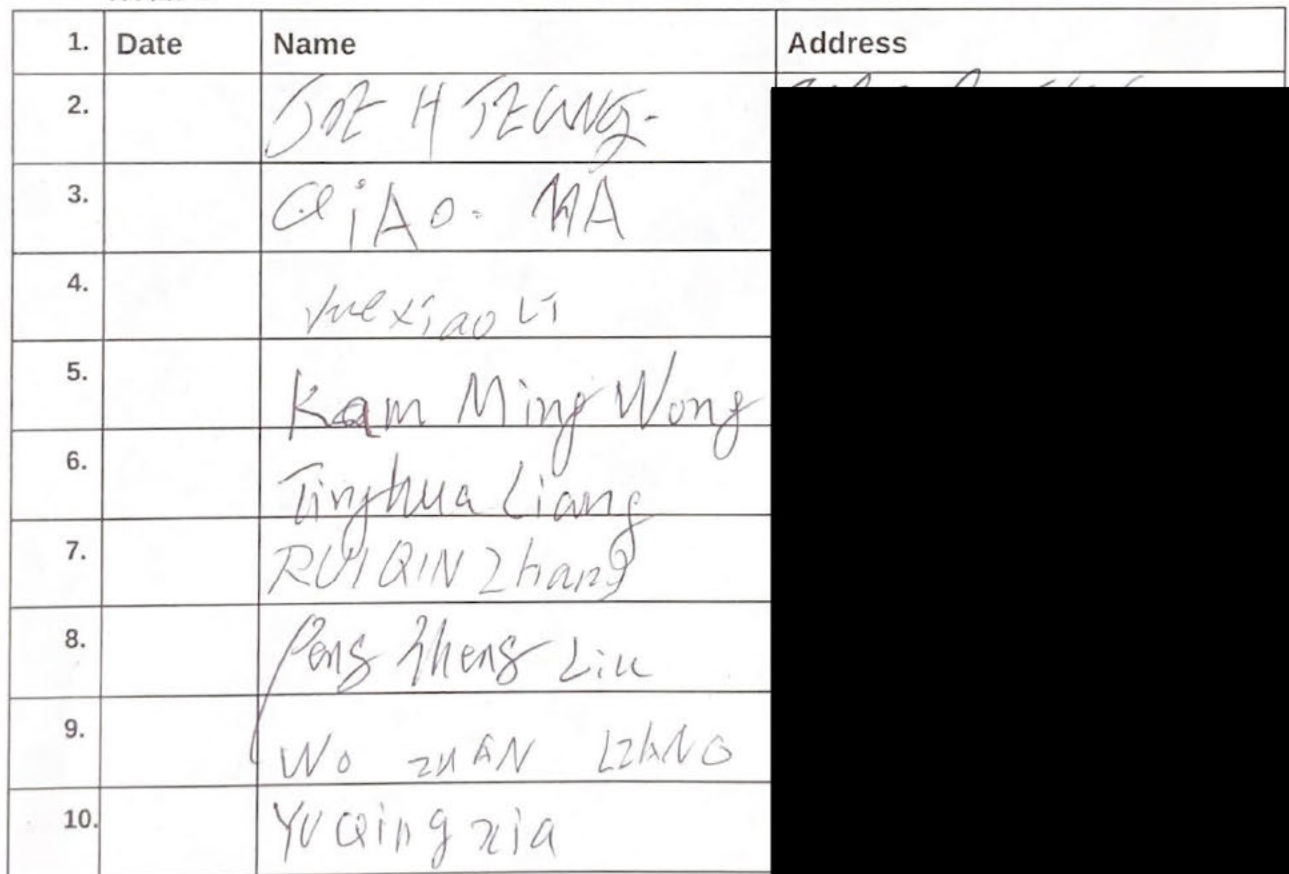 1. Date Name Address
2. JOE H JEUNG-
3. QiAo. MA
4. xiao Li
5. Kam Ming Wong
6. Tinghua Liang
7. RUIQIN Zhang
8. Peng Zheng Liu
9. Wo ZHAN
10. YuQing xia